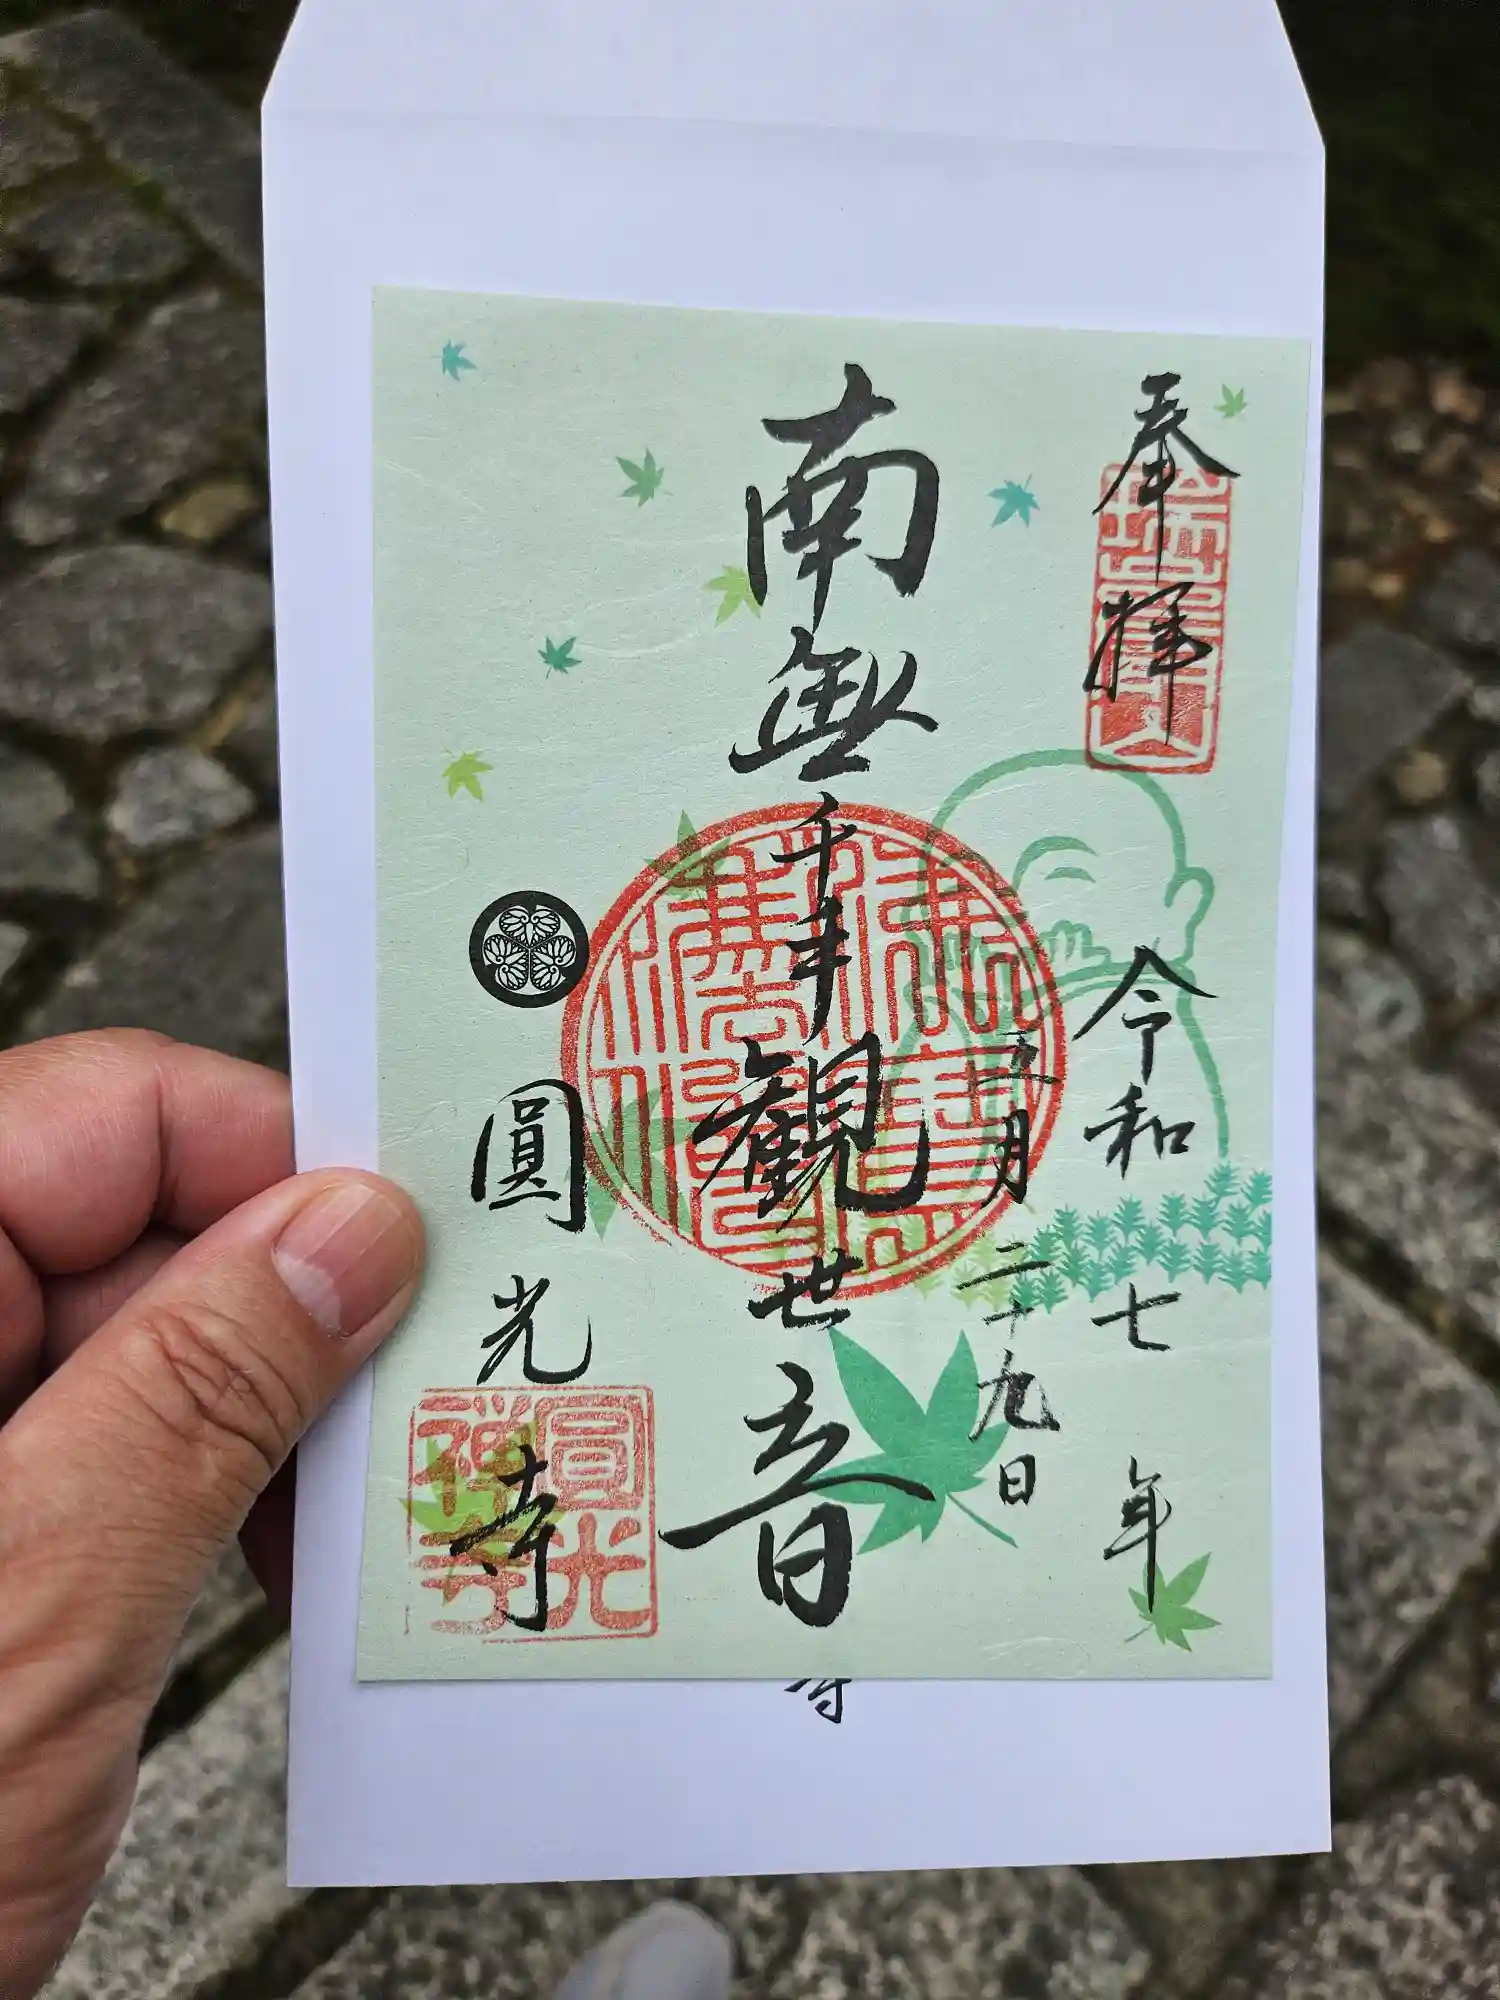 奉拝
瑞巌山
令和七年
五月二十九日
南無千手観世音
圓光寺
圓光
禅寺
寺